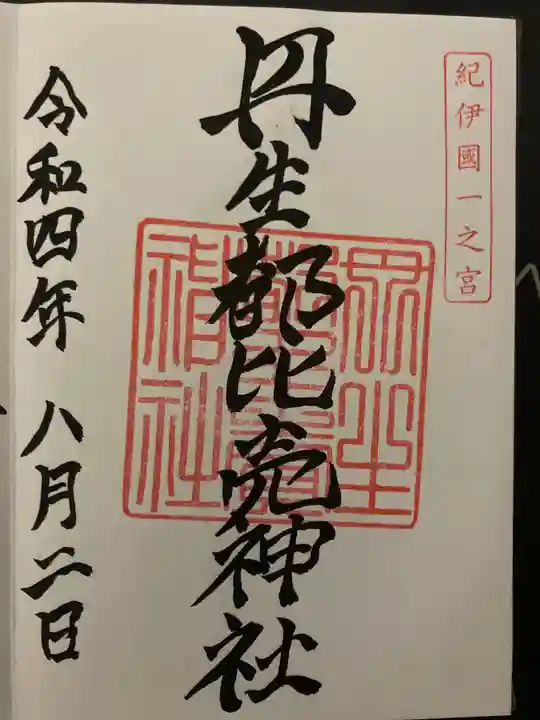 紀伊國一之宮
丹生都比売神社
丹生都比賣神社
令和四年 八月二日